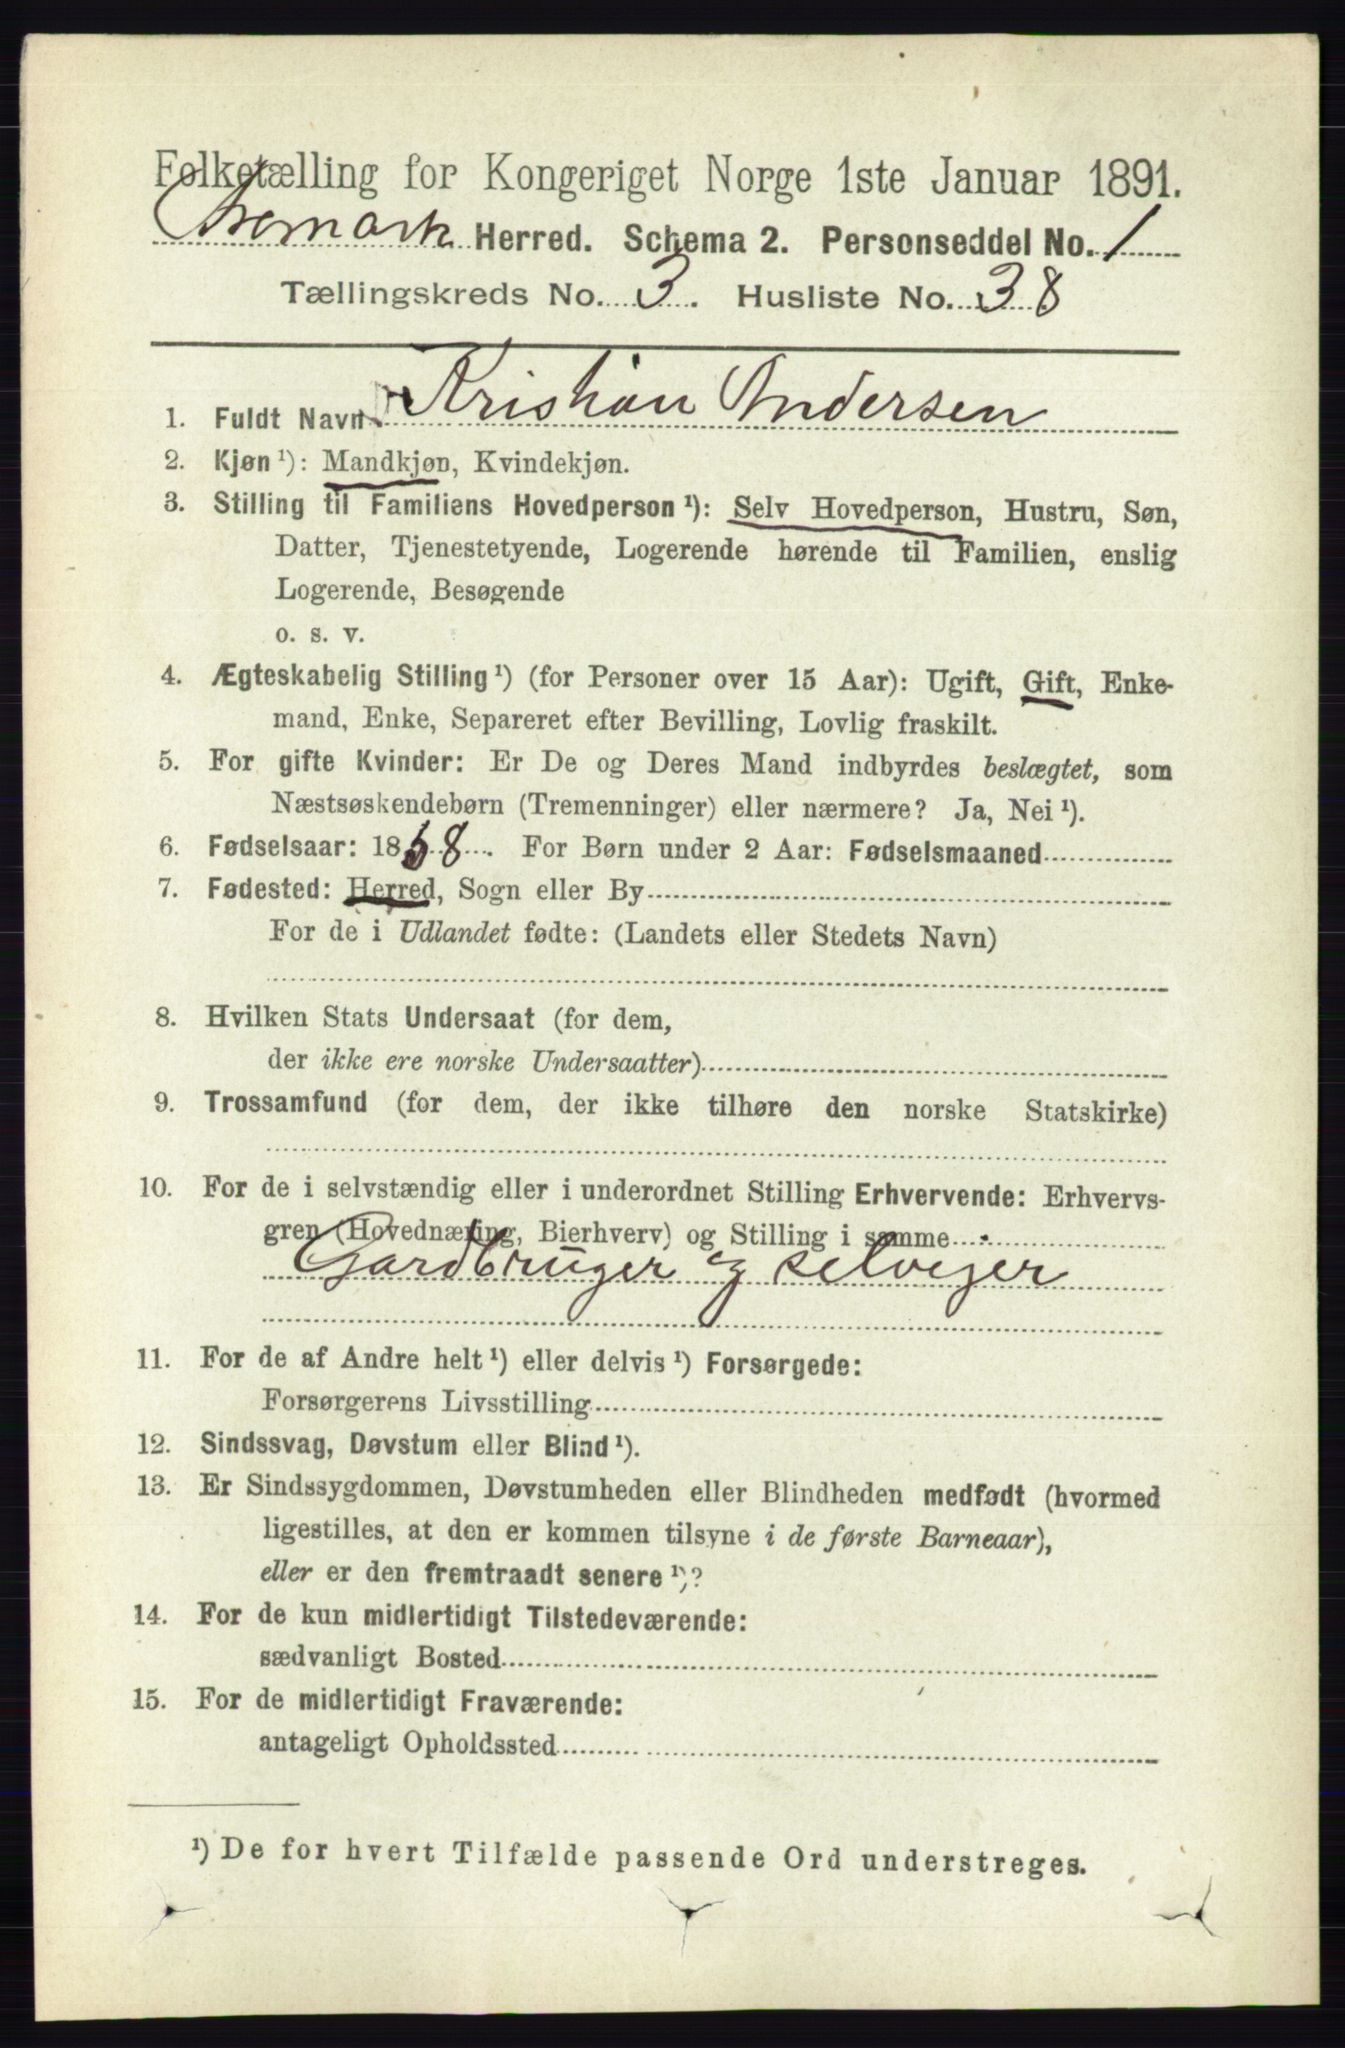 Folketælling for Kongeriget Norge 1ste Januar 1891.
Aremark Herred. Schema 2. Personseddel No. 1
Tællingskreds No. 3. Husliste No. 38
1. Fuldt Navn Kristian Andersen
2. Kjøn ¹): Mandkjøn, Kvindekjøn.
3. Stilling til Familiens Hovedperson ¹): Selv Hovedperson, Hustru, Søn,
Datter, Tjenestetyende, Logerende hørende til Familien, enslig
Logerende, Besøgende
o. s. v.
4. Ægteskabelig Stilling ¹) (for Personer over 15 Aar): Ugift, Gift, Enke-
mand, Enke, Separeret efter Bevilling, Lovlig fraskilt.
5. For gifte Kvinder: Er De og Deres Mand indbyrdes beslægtet, som
Næstsøskendebørn (Tremenninger) eller nærmere? Ja, Nei ¹).
6. Fødselsaar: 1858. For Børn under 2 Aar: Fødselsmaaned
7. Fødested: Herred, Sogn eller By
For de i Udlandet fødte: (Landets eller Stedets Navn)
8. Hvilken Stats Undersaat (for dem,
der ikke ere norske Undersaatter)
9. Trossamfund (for dem, der ikke tilhøre den norske Statskirke)
10. For de i selvstændig eller i underordnet Stilling Erhvervende: Erhvervs-
gren (Hovednæring, Bierhverv) og Stilling i samme
Gardbruger og selveier
11. For de af Andre helt ¹) eller delvis ¹) Forsørgede:
Forsørgerens Livsstilling
12. Sindssvag, Døvstum eller Blind ¹).
13. Er Sindssygdommen, Døvstumheden eller Blindheden medfødt (hvormed
ligestilles, at den er kommen tilsyne i de første Barneaar),
eller er den fremtraadt senere ¹)?
14. For de kun midlertidigt Tilstedeværende:
sædvanligt Bosted
15. For de midlertidigt Fraværende:
antageligt Opholdssted
¹) De for hvert Tilfælde passende Ord understreges.